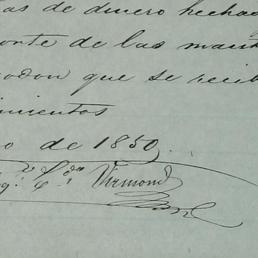 as de dinero hecha
orte de las man
odon que se reci
imientos
o de 1850.
Virmond